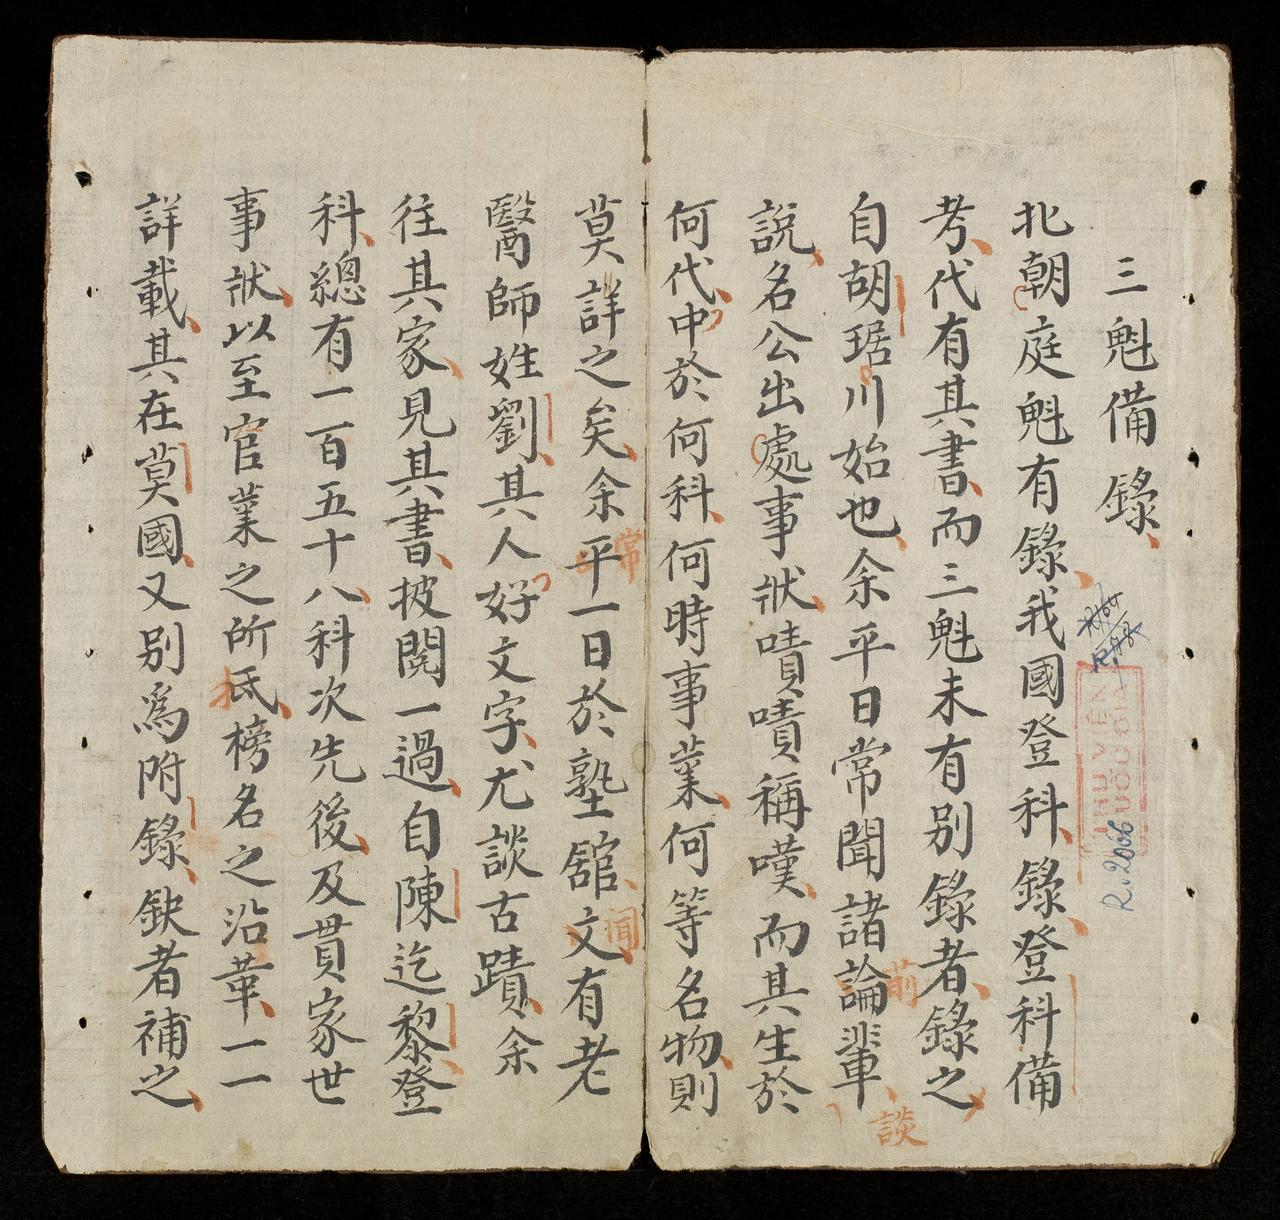 三魁備錄
北朝庭魁有錄我國登科錄登科備
考代有其書而三魁未有別錄者錄之
自胡琚川始也余平日常聞諸論輩
前
談
說名公出處事狀嘖嘖稱嘆而其生於
何代中於何科何時事業何等名物則
莫詳之矣余平一日於塾舘文有老
常
聞
醫師姓劉其人好文字尤談古蹟余
往其家見其書披閱一過自陳迄黎登
科總有一百五十八科次先後及貫家世
事狀以至官業之所氐榜名之沿革一一
詳載其在莫國又別爲附錄缺者補之
THU VIEN
QUOC GIA
R.2066